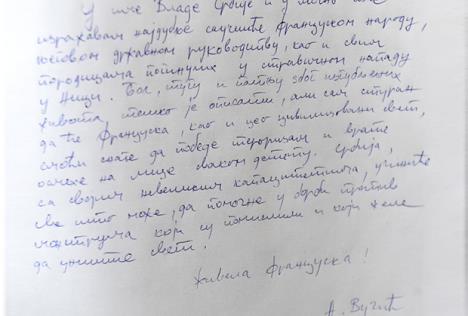 У име Владе Србије и у лично име
изражавам најдубље саучешће француском народу,
његовом државном руководству, као и свим
породицама погинулих у стравичном нападу
у Ници. Бол, тугу и патњу због изгубљених
живота, тешко је описати, али сам сигуран
да ће Француска, као и цео цивилизовани свет,
смоћи снаге да победе тероризам и врате
осмехе на лице сваком детету. Србија,
са својим невеликим капацитетима, учиниће
све што може, да помогне у одбрани против
монструма који су починили и који желе
да униште свет.
Живела Француска!
А. Вучић